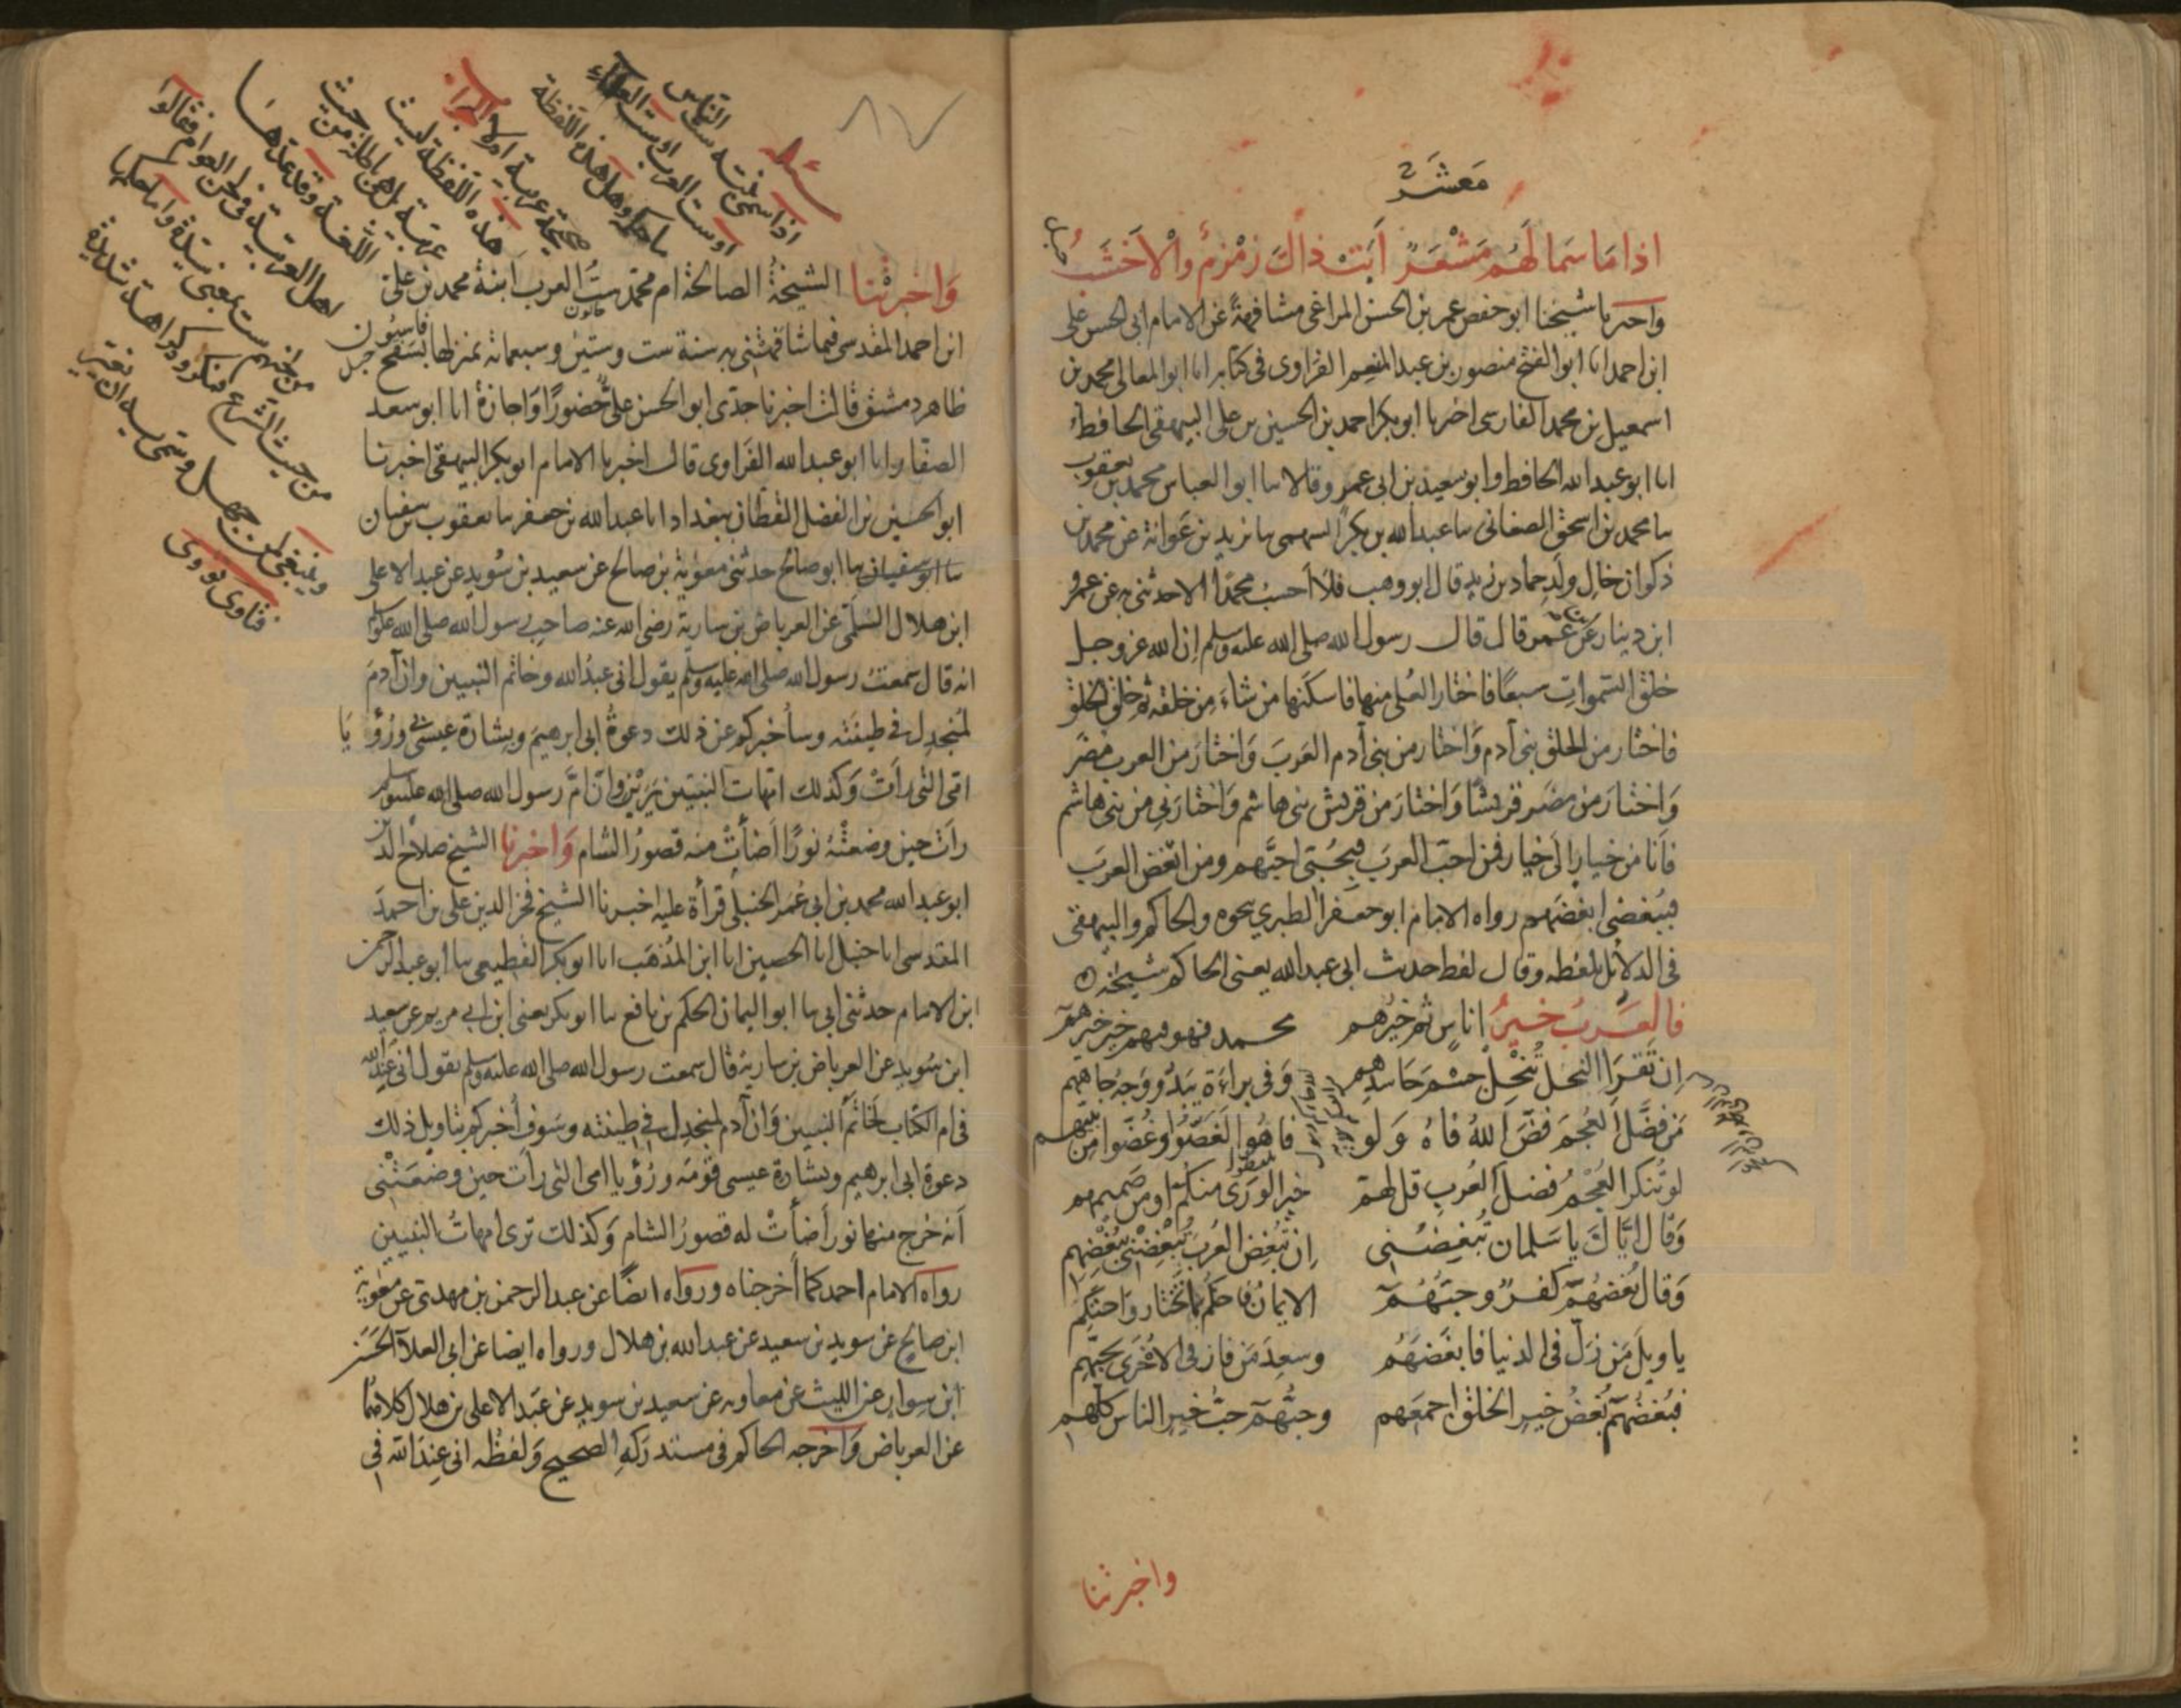 معشر
اذا ما سما لهم مشعر ابت ذاك زمزم والاخشب
واخبرنا شيخنا ابو حفص عمر بن الحسن المراغى مشافهة عن الامام ابى الحسن على
ابن احمد انا ابو الفتح منصور بن عبد المنعم الفراوى فى كتابه انا ابو المعالى محمد بن
اسمعيل بن محمد الفارسى اخبرنا ابو بكر احمد بن الحسين بن على البيهقى الحافظ
انا ابو عبد الله الحافظ وابو سعيد بن ابى عمرو قالا ثنا ابو العباس محمد بن يعقوب
ثنا محمد بن اسحق الصغانى ثنا عبد الله بن بكر السهمى ثنا يزيد بن عوانة عن محمد بن
ذكوان خال ولد حماد بن زيد قال ابو وهب فلا احسب محمدا الا حدثنى به عن عمرو
ابن دينار عن عمر قال قال رسول الله صلى الله عليه وسلم إن الله عز وجل
خلق السموات سبعا فاختار العلى منها فاسكنها من شاء من خلقه ثم خلق الخلق
فاختار من الخلق بنى آدم واختار من بنى آدم العرب واختار من العرب مضر
واختار من مضر قريشا واختار من قريش بنى هاشم واختارنى من بنى هاشم
فانا من خيار الى خيار فمن احب العرب فبحبى احبهم ومن ابغض العرب
فببغضى ابغضهم رواه الامام ابو جعفر الطبرى نحوه والحاكم والبيهقى
فى الدلائل بلفظه وقال لفظ حديث ابى عبد الله يعنى الحاكم شيخه
فالعرب خير اناس ثم خيرهم محمد فهو فيهم خير خيرهم
ان تقرا النحل تنحل جسم حاسدهم وفى براءة يبدو وجه جاههم
من فضل العجم فض الله فاه ولو فاهوا لغصوا وغضوا من نبيهم
لو تنكر العجم فضل العرب قل لهم خير الورى منكم او من صميمهم
وقال اياك يا سلمان تبغضنى ان تبغض العرب تبغضنى ببغضهم
وقال بغضهم كفر وحبهم الايمان فاحكم بما تختار واحتكم
يا ويل من زل فى الدنيا فابغضهم وسعد من فاز فى الاخرى بحبهم
فبغضهم بغض خير الخلق اجمعهم وحبهم حب خير الناس كلهم
واخبرتنا
٨٧
اذا سمى بنته ست الناس
او ست العرب او ست العلماء
ما حكمه وهل هذه اللفظة
صحيحة عربية او لا الجواب
هذه اللفظة ليست
عربية بل هى باطلة من حيث
اللغة وقد عدها
اهل العربية فى لحن العوام فقالوا
ست بمعنى سيدة واما حكمها
من حيث الشرع فمكروه كراهة شديدة
وينبغى لمن جهل وسمى به ان يغير
فتاوى نووى
واخبرتنا الشيخة الصالحة ام محمد ست العرب ابنة محمد بن على
ابن احمد المقدسى فيما شافهتنى به سنة ست وستين وسبعمائة بمنزلها بسفح جبل قاسيون
ظاهر دمشق قالت اخبرنا جدى ابو الحسن على حضورا واجازة انا ابو سعد
الصفار انا ابو عبد الله الفراوى قال اخبرنا الامام ابو بكر البيهقى اخبرنا
ابو الحسين بن الفضل القطان ببغداد انا عبد الله بن جعفر ثنا يعقوب بن سفيان
ثنا ابو سفيان ثنا ابو صالح حدثنى معوية بن صالح عن سعيد بن سويد عن عبد الاعلى
ابن هلال السلمى عن العرباض بن سارية رضى الله عنه صاحب رسول الله صلى الله عليه وسلم
انه قال سمعت رسول الله صلى الله عليه وسلم يقول انى عبد الله وخاتم النبيين وان آدم
لمنجدل فى طينته وساخبركم عن ذلك دعوة ابى ابرهيم وبشارة عيسى ورؤيا
امى التى رأت وكذلك امهات النبيين يرين وان ام رسول الله صلى الله عليه وسلم
رأت حين وضعته نورا اضاءت منه قصور الشام واخبرنا الشيخ صلاح الدين
ابو عبد الله محمد بن ابى عمر الحنبلى قراءة عليه اخبرنا الشيخ فخر الدين على بن احمد
المقدسى انا حنبل انا الحصين انا ابن المذهب انا ابو بكر القطيعى ثنا ابو عبد الرحمن
ابن الامام حدثنى ابى ثنا ابو اليمان الحكم بن نافع ثنا ابو بكر يعنى ابن ابى مريم عن سعيد
ابن سويد عن العرباض بن سارية قال سمعت رسول الله صلى الله عليه وسلم يقول انى عند الله
فى ام الكتاب لخاتم النبيين وان آدم لمنجدل فى طينته وسوف أخبركم بتاويل ذلك
دعوة ابى ابرهيم وبشارة عيسى قومه ورؤيا امى التى رات حين وضعتنى
انه خرج منها نور أضأت له قصور الشام وكذلك ترى امهات النبيين
رواه الامام احمد كما أخرجناه ورواه ايضا عن عبد الرحمن بن مهدى عن معوية
ابن صالح عن سويد بن سعيد عن عبد الله بن هلال ورواه ايضا عن ابى العلاء الحسن
ابن سوار عن الليث عن معاويه عن سعيد بن سويد عن عبد الاعلى بن هلال كلاهما
عن العرباض واخرجه الحاكم فى مستدركه الصحيح ولفظه انى عند الله فى